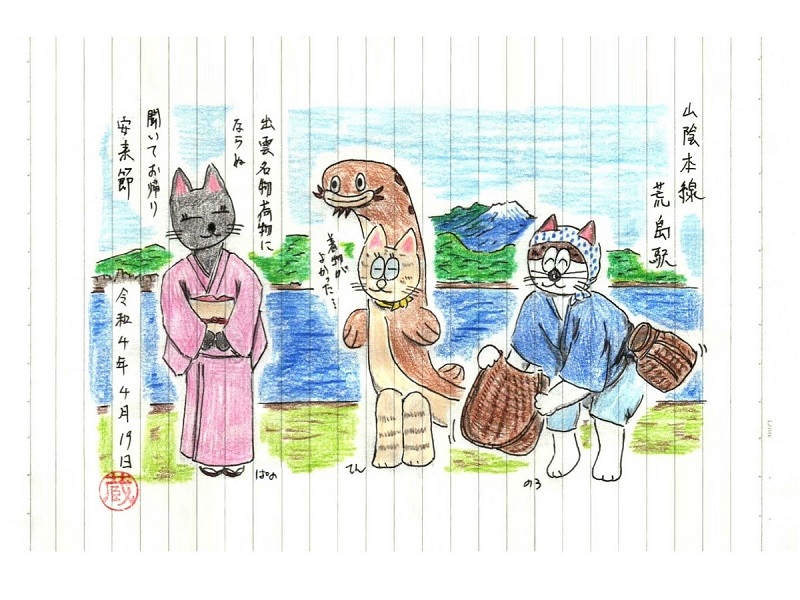 山陰本線
荒島駅
出雲名物荷物に
ならぬ
聞いてお帰り
安来節
着物が
よかった…
令和4年4月19日
蔵
ぱの
てん
のろ